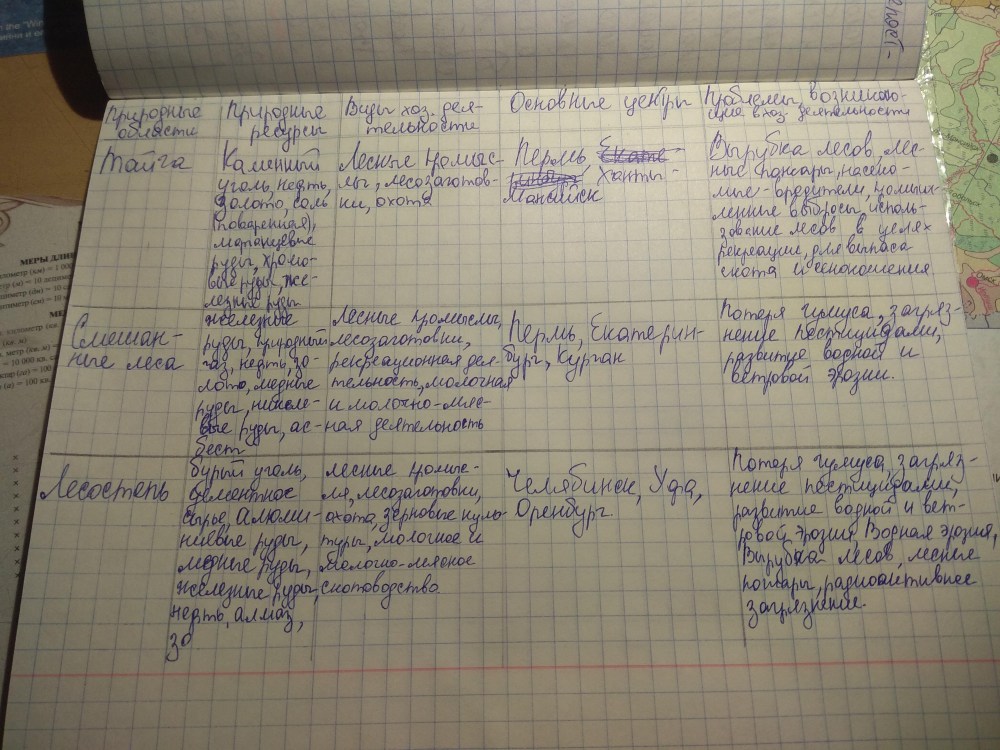 Природные области
Природные ресурсы
Виды хоз. дея-
тельности
Основные центры
Проблемы, возникаю-
щие в хоз. деятельности
Тайга
Каменный
уголь, нефть,
золото, соль
(поваренная),
марганцевые
руды, хромо-
вые руды, же-
лезные руды
Лесные промыс-
лы, лесозаготов-
ки, охота
Пермь, Ханты-
Мансийск
Вырубка лесов, лес-
ные пожары, насеко-
мые-вредители, промыш-
ленные выбросы, исполь-
зование лесов в целях
рекреации, для выпаса
скота и сенокошения
Смешан-
ные леса
железные
руды, природный
газ, нефть, зо-
лото, медные
руды, никеле-
вые руды, ас-
бест
Лесные промыслы,
лесозаготовки,
рекреационная дея-
тельность, молочная
и молочно-мяс-
ная деятельность
Пермь, Екатерин-
бург, Курган
Потеря гумуса, загряз-
нение пестицидами,
развитие водной и
ветровой эрозии.
Лесостепь
бурый уголь,
цементное
сырье, алюми-
ниевые руды,
медные руды,
железные руды,
нефть, алмаз,
зо
лесные промыс-
лы, лесозаготовки,
охота, зерновые куль-
туры, молочное и
молочно-мясное
скотоводство.
Челябинск, Уфа,
Оренбург
Потеря гумуса, загряз-
нение пестицидами,
развитие водной и вет-
ровой эрозия, Водная эрозия,
Вырубка лесов, лесные
пожары, радиоактивное
загрязнение.
МЕРЫ ДЛИ